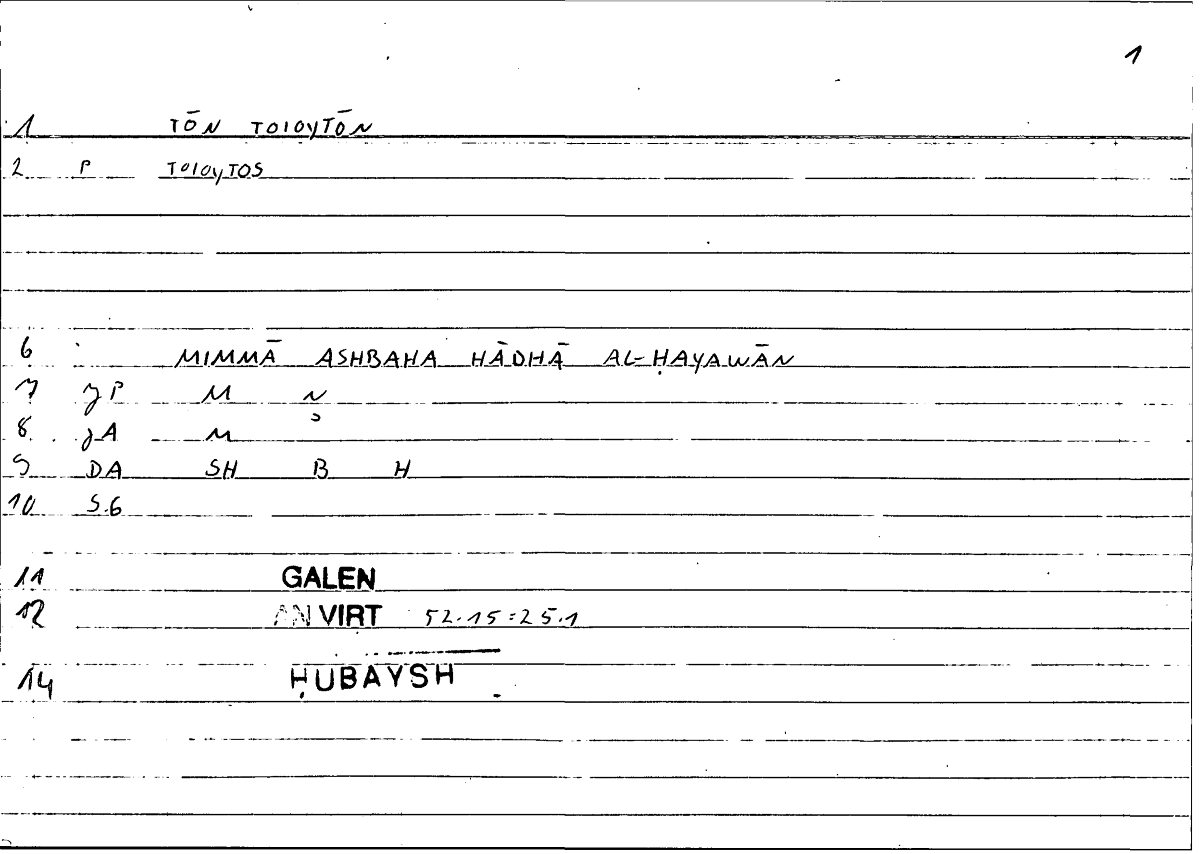 1
1 TŌN TOIOYTŌN
2 P TOIOYTOS
6 MIMMĀ ASHBAHA HĀDHĀ AL-ḤAYAWĀN
7 JP M N
8 JA M
9 DA SH B H
10 S.6
11 GALEN
12 AN VIRT 52.15=25.1
14 ḤUBAYSH